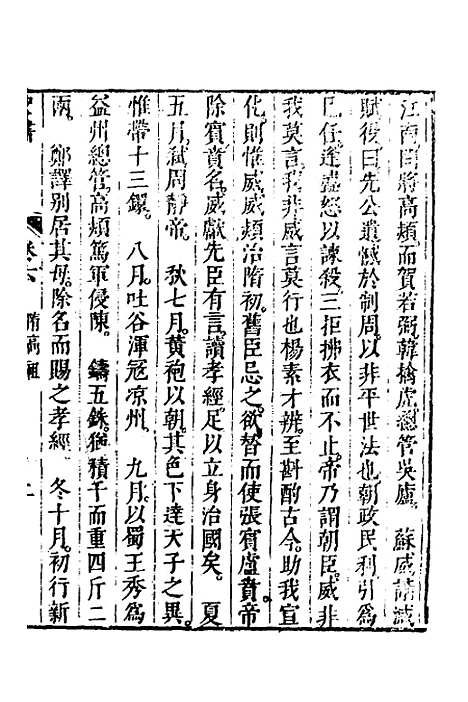 江南曰將高熲而賀若弼韓擒虎總管吳廬　蘇威請減
賦役曰先公遺憾於制周以非平世法也朝政民利引爲
己任逢盡怒以諫殺三拒拂衣而不止帝乃謂朝臣威非
我莫言我非威言莫行也楊素才辨至斟酌古今助我宣
化則惟威威熲治隋初舊臣忌之欲替而使張賓盧賁帝
除賓賁名威獻先臣有言讀孝經足以立身治國矣　夏
五月弒周靜帝　秋七月黃袍以朝其色下達天子之異
惟帶十三鐶　八月吐谷渾寇涼州　九月以蜀王秀爲
益州總管高熲篤軍侵陳　鑄五銖猶積千而重四斤二
兩　鄭譯別居其母除名而賜之孝經　冬十月初行新
史書　卷六　隋高祖